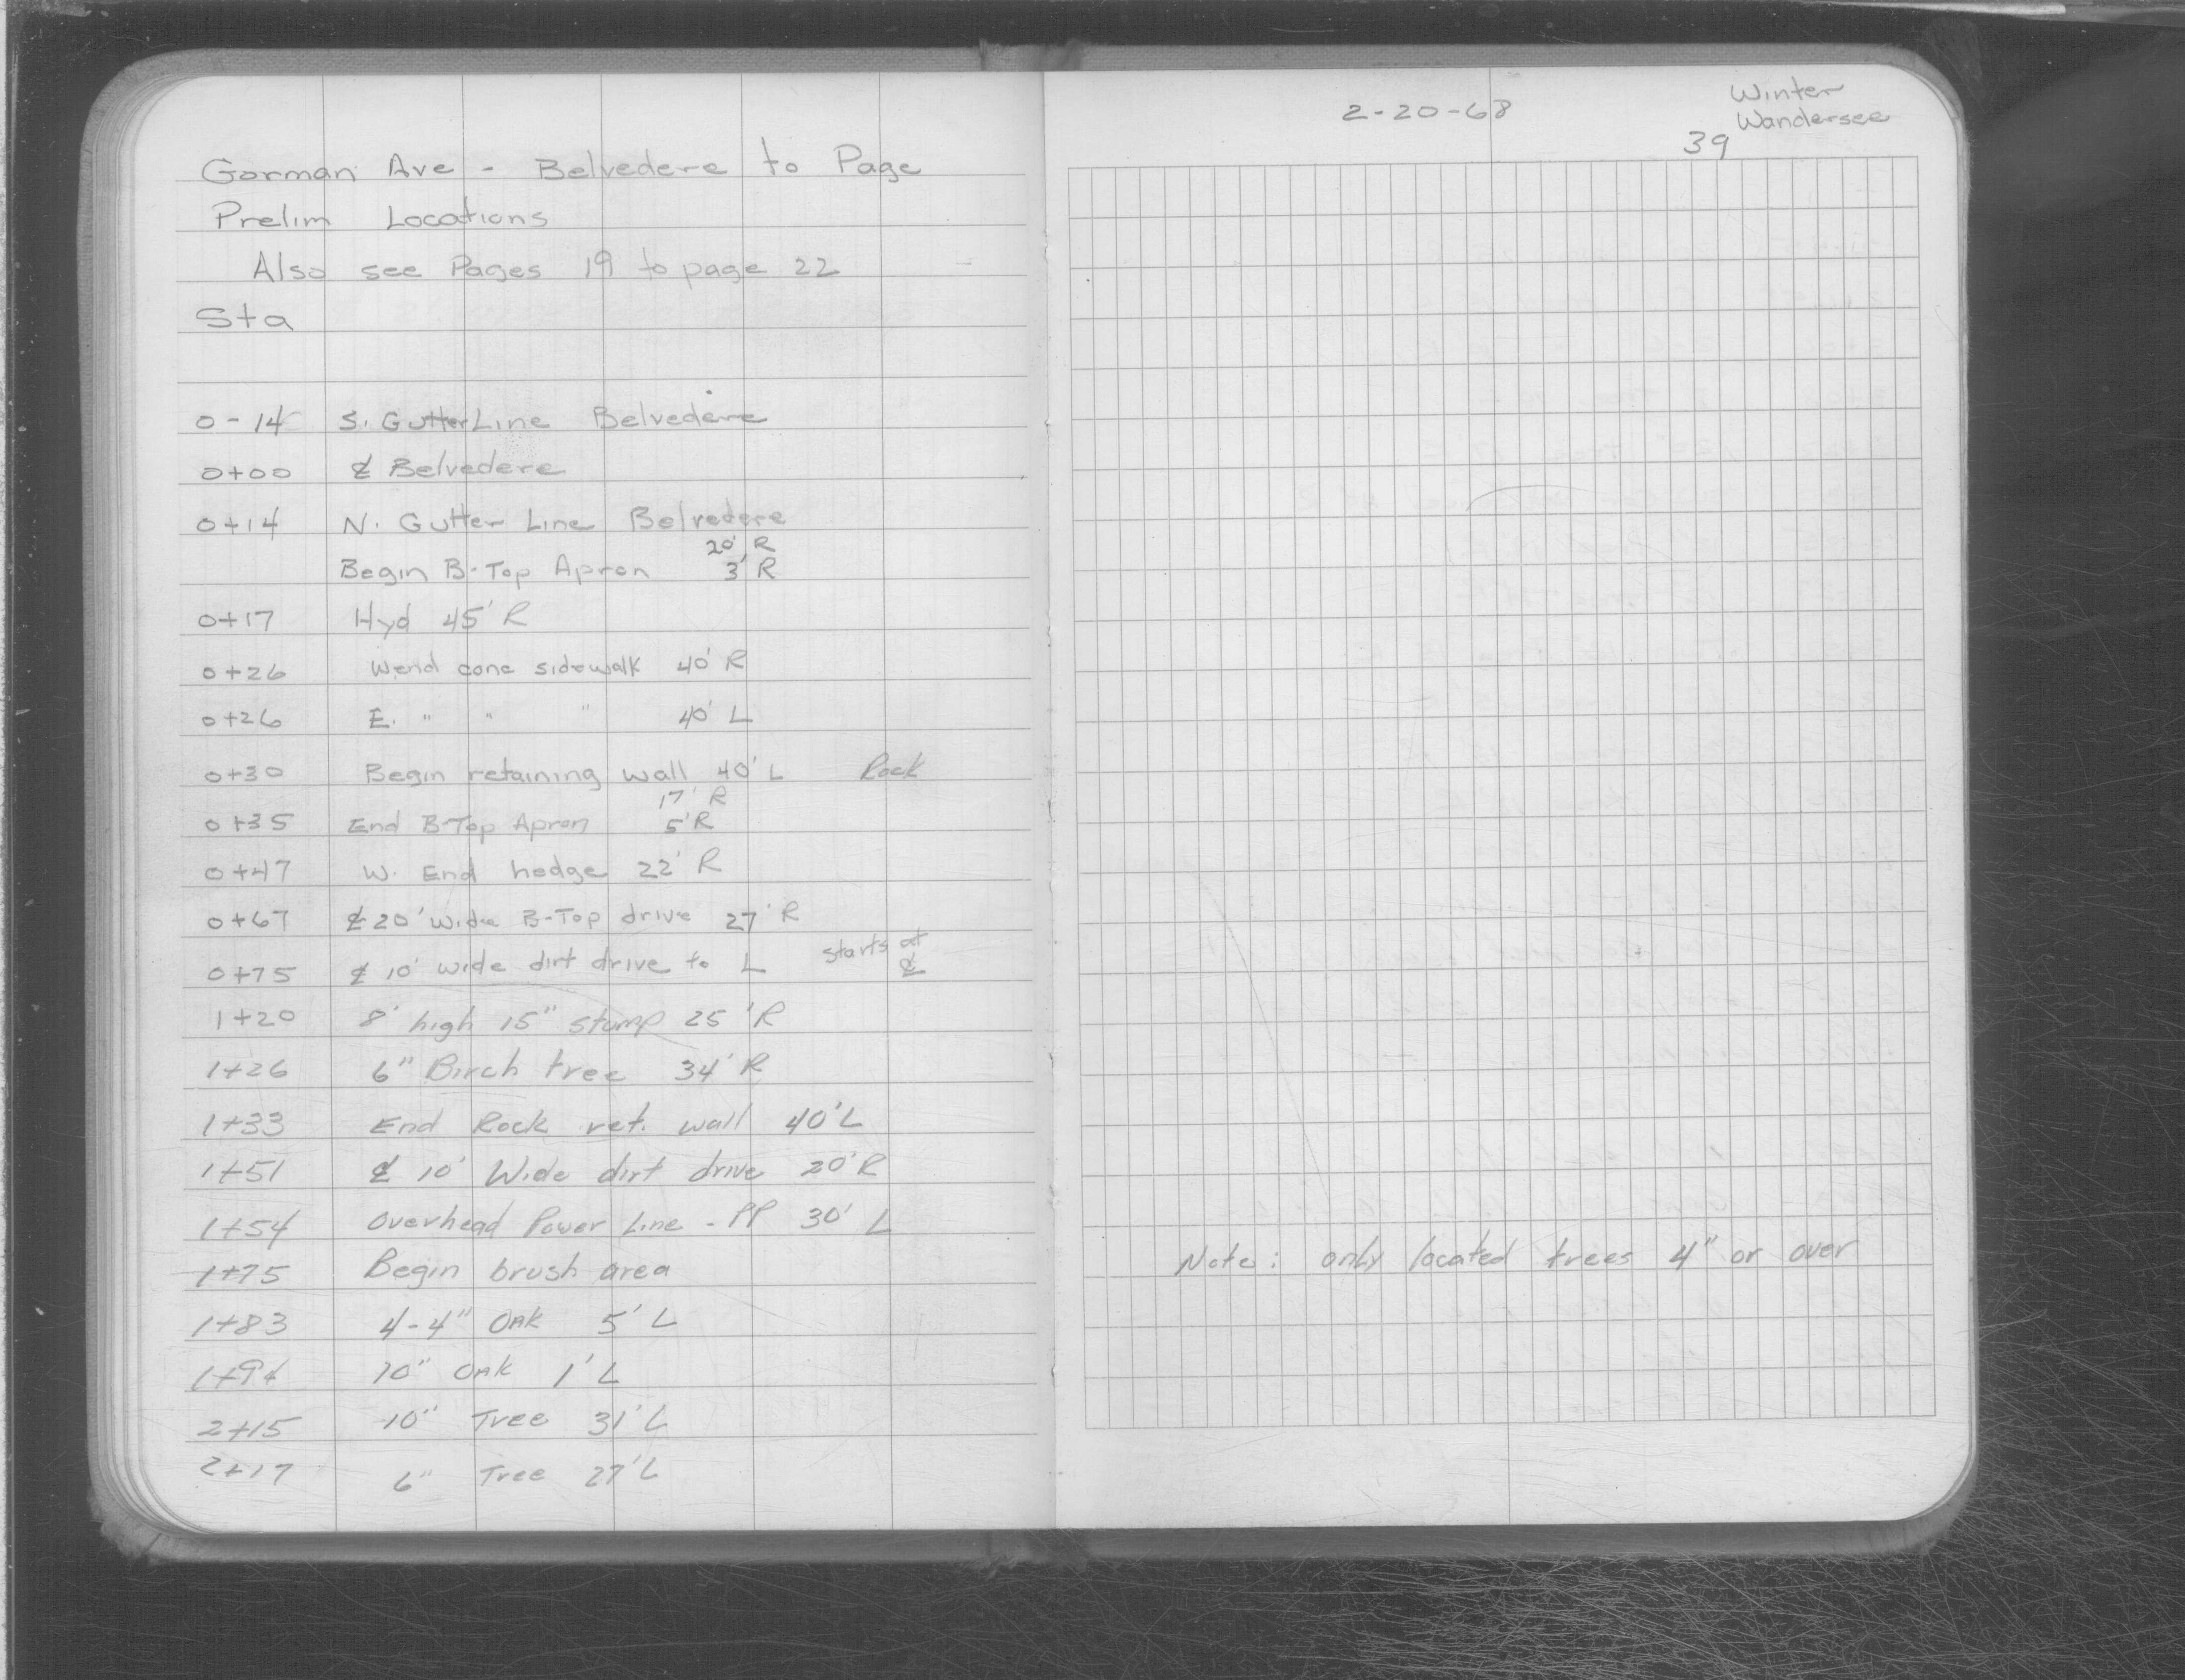 Gorman Ave - Belvedere to Page
Prelim Locations
Also see Pages 19 to page 22
Sta
0-14 S. Gutter Line Belvedere
0+00 ℄ Belvedere
0+14 N. Gutter Line Belvedere
20' R
Begin B-Top Apron 3' R
0+17 Hyd 45' R
0+26 W end conc sidewalk 40' R
0+26 E. " " " 40' L
0+30 Begin retaining wall 40' L Rock
17' R
0+35 End B-Top Apron 5' R
0+47 W. End hedge 22' R
0+67 ℄ 20' wide B-Top drive 27' R
0+75 ℄ 10' wide dirt drive to L starts at ℄
1+20 8' high 15" stump 25' R
1+26 6" Birch tree 34' R
1+33 End Rock ret. wall 40' L
1+51 ℄ 10' Wide dirt drive 20' R
1+54 Overhead Power Line - PP 30' L
1+75 Begin brush area
1+83 4-4" OAK 5' L
10" OAK 1' L
2+15 10" Tree 31' L
2+17 6" Tree 27' L
2-20-68
Winter
Wandersee
39
Note: only located trees 4" or over